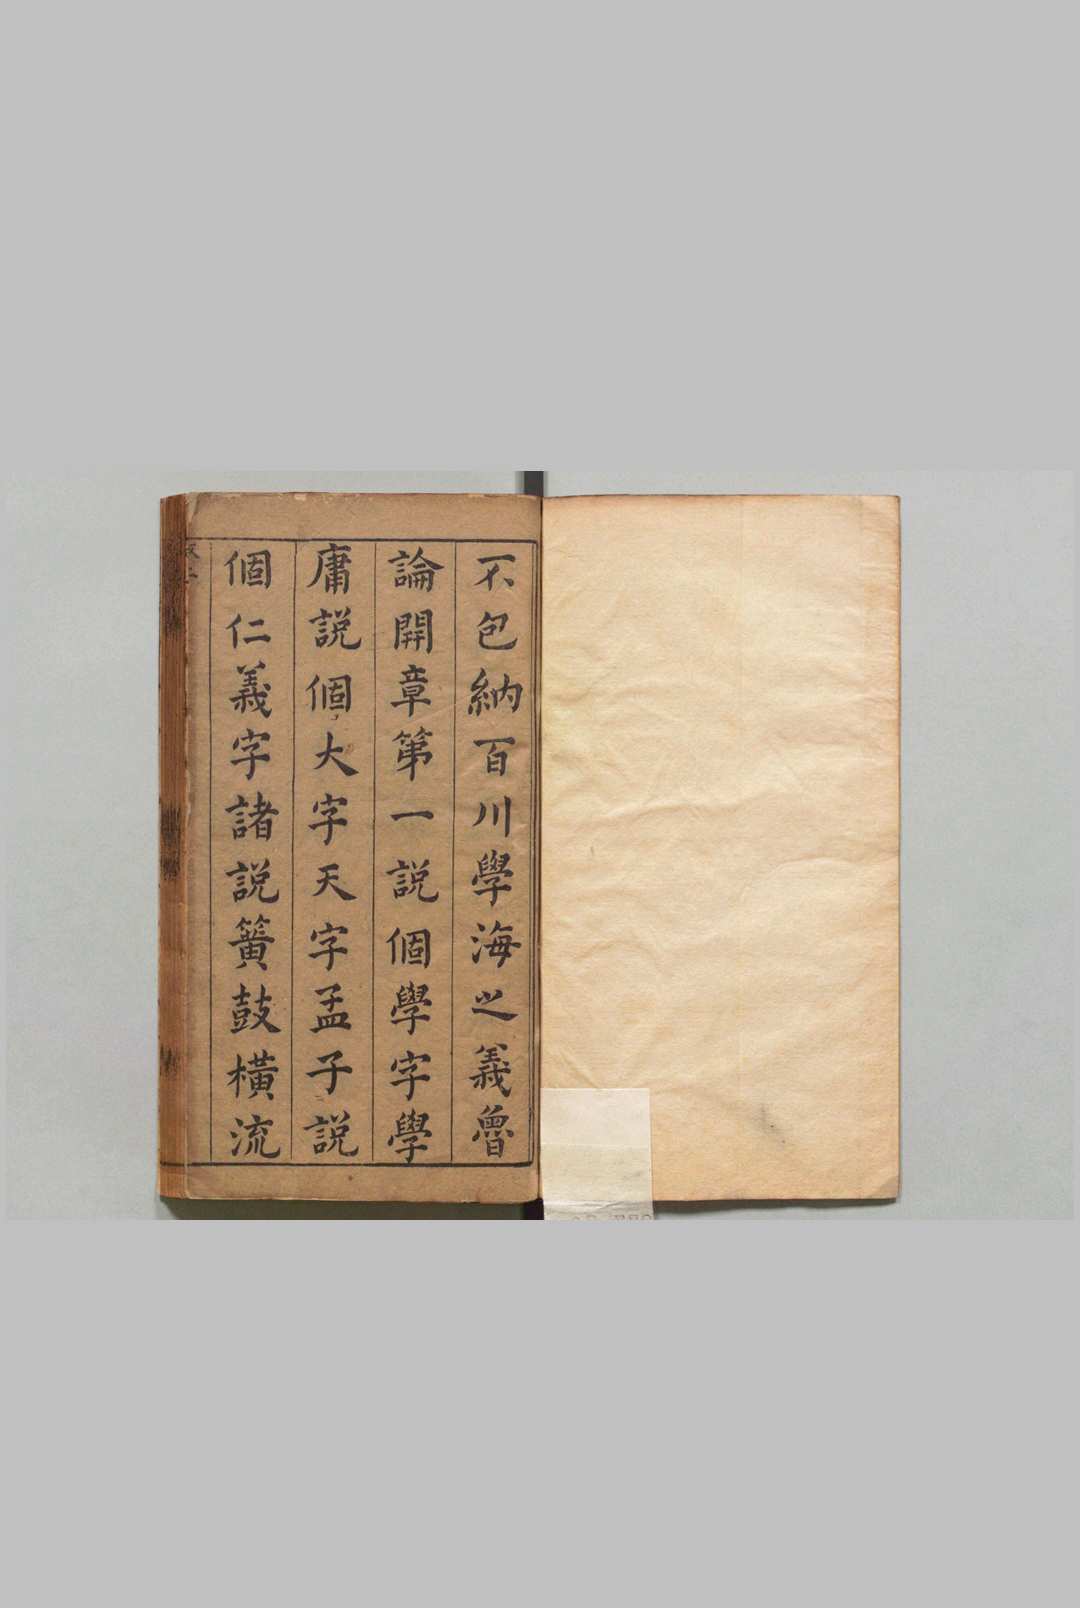 不包納百川學海之義魯
論開章第一說個學字學
庸說個大字天字孟子說
個仁義字諸說簧鼓橫流